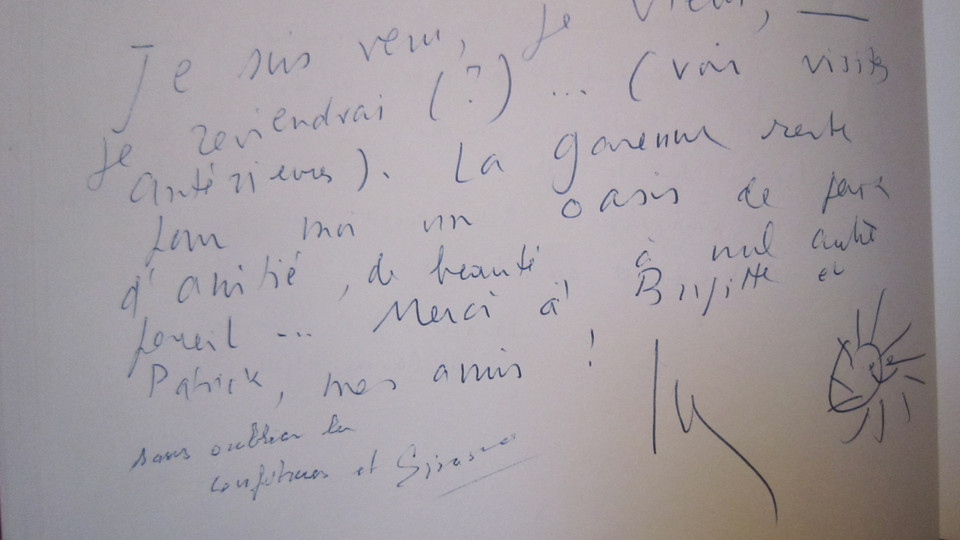 Je suis venu, je viens,
je reviendrai (?) ... (voir visites
antérieures). La Garenne reste
pour moi un oasis de paix
d'amitié, de beauté, à nul autre
pareil ... Merci à Brigitte et
Patrick, mes amis !
sans oublier les
confitures et